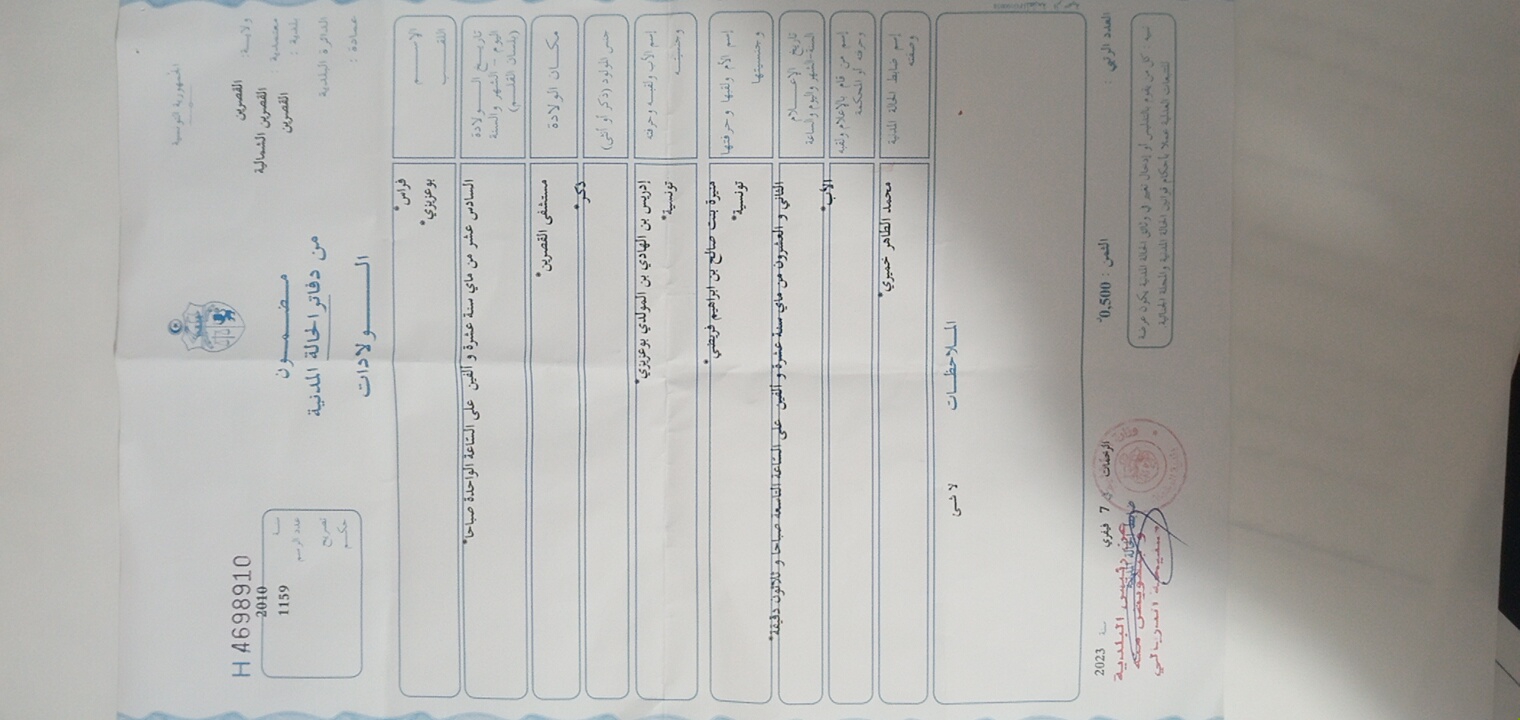 الجمهورية التونسية
ولاية : القصرين
معتمدية : القصرين الشمالية
بلدية : القصرين
الدائرة البلدية
عمادة :
مضمون
من دفاتر الحالة المدنية
الولادات
H 4698910
سنة 2010
عدد الرسم 1159
تصريح
حكم
الاسم *فراس*
اللقب *بوعزيزي*
تاريخ الولادة
(اليوم - الشهر والسنة
بلسان القلم)
*السادس عشر من ماي سنة عشرة و ألفين على الساعة الواحدة صباحا*
مكان الولادة *مستشفى القصرين*
جنس المولود (ذكر أو أنثى) *ذكر*
إسم الأب ولقبه وحرفته *إدريس بن الهادي بن المولدي بوعزيزي*
وجنسيته *تونسية*
إسم الأم ولقبها وحرفتها *منيرة بنت صالح بن ابراهيم فريضي*
وجنسيتها *تونسية*
تاريخ الإعلام
السنة-الشهر واليوم والساعة
*الثاني و العشرون من ماي سنة عشرة و ألفين على الساعة التاسعة صباحا و ثلاثون دقيقة*
إسم من قام بالإعلام ولقبه
وحرفته أو المحكمة
*الأب*
إسم ضابط الحالة المدنية
وصفته
*محمد الطاهر خميري*
الملاحظات
لا شئ
العدد الرتبي :
الثمن : 0,500
الرخمات في 7 فيفري سنة 2023
ضابط الحالة المدنية
عن رئيس البلدية
وبتفويض منه
تنبيه : كل من يقوم بالتدليس أو إدخال تغيير في وثائق الحالة المدنية يكون عرضة
للتتبعات العدلية عملا بأحكام قوانين الحالة المدنية والمجلة الجنائية.